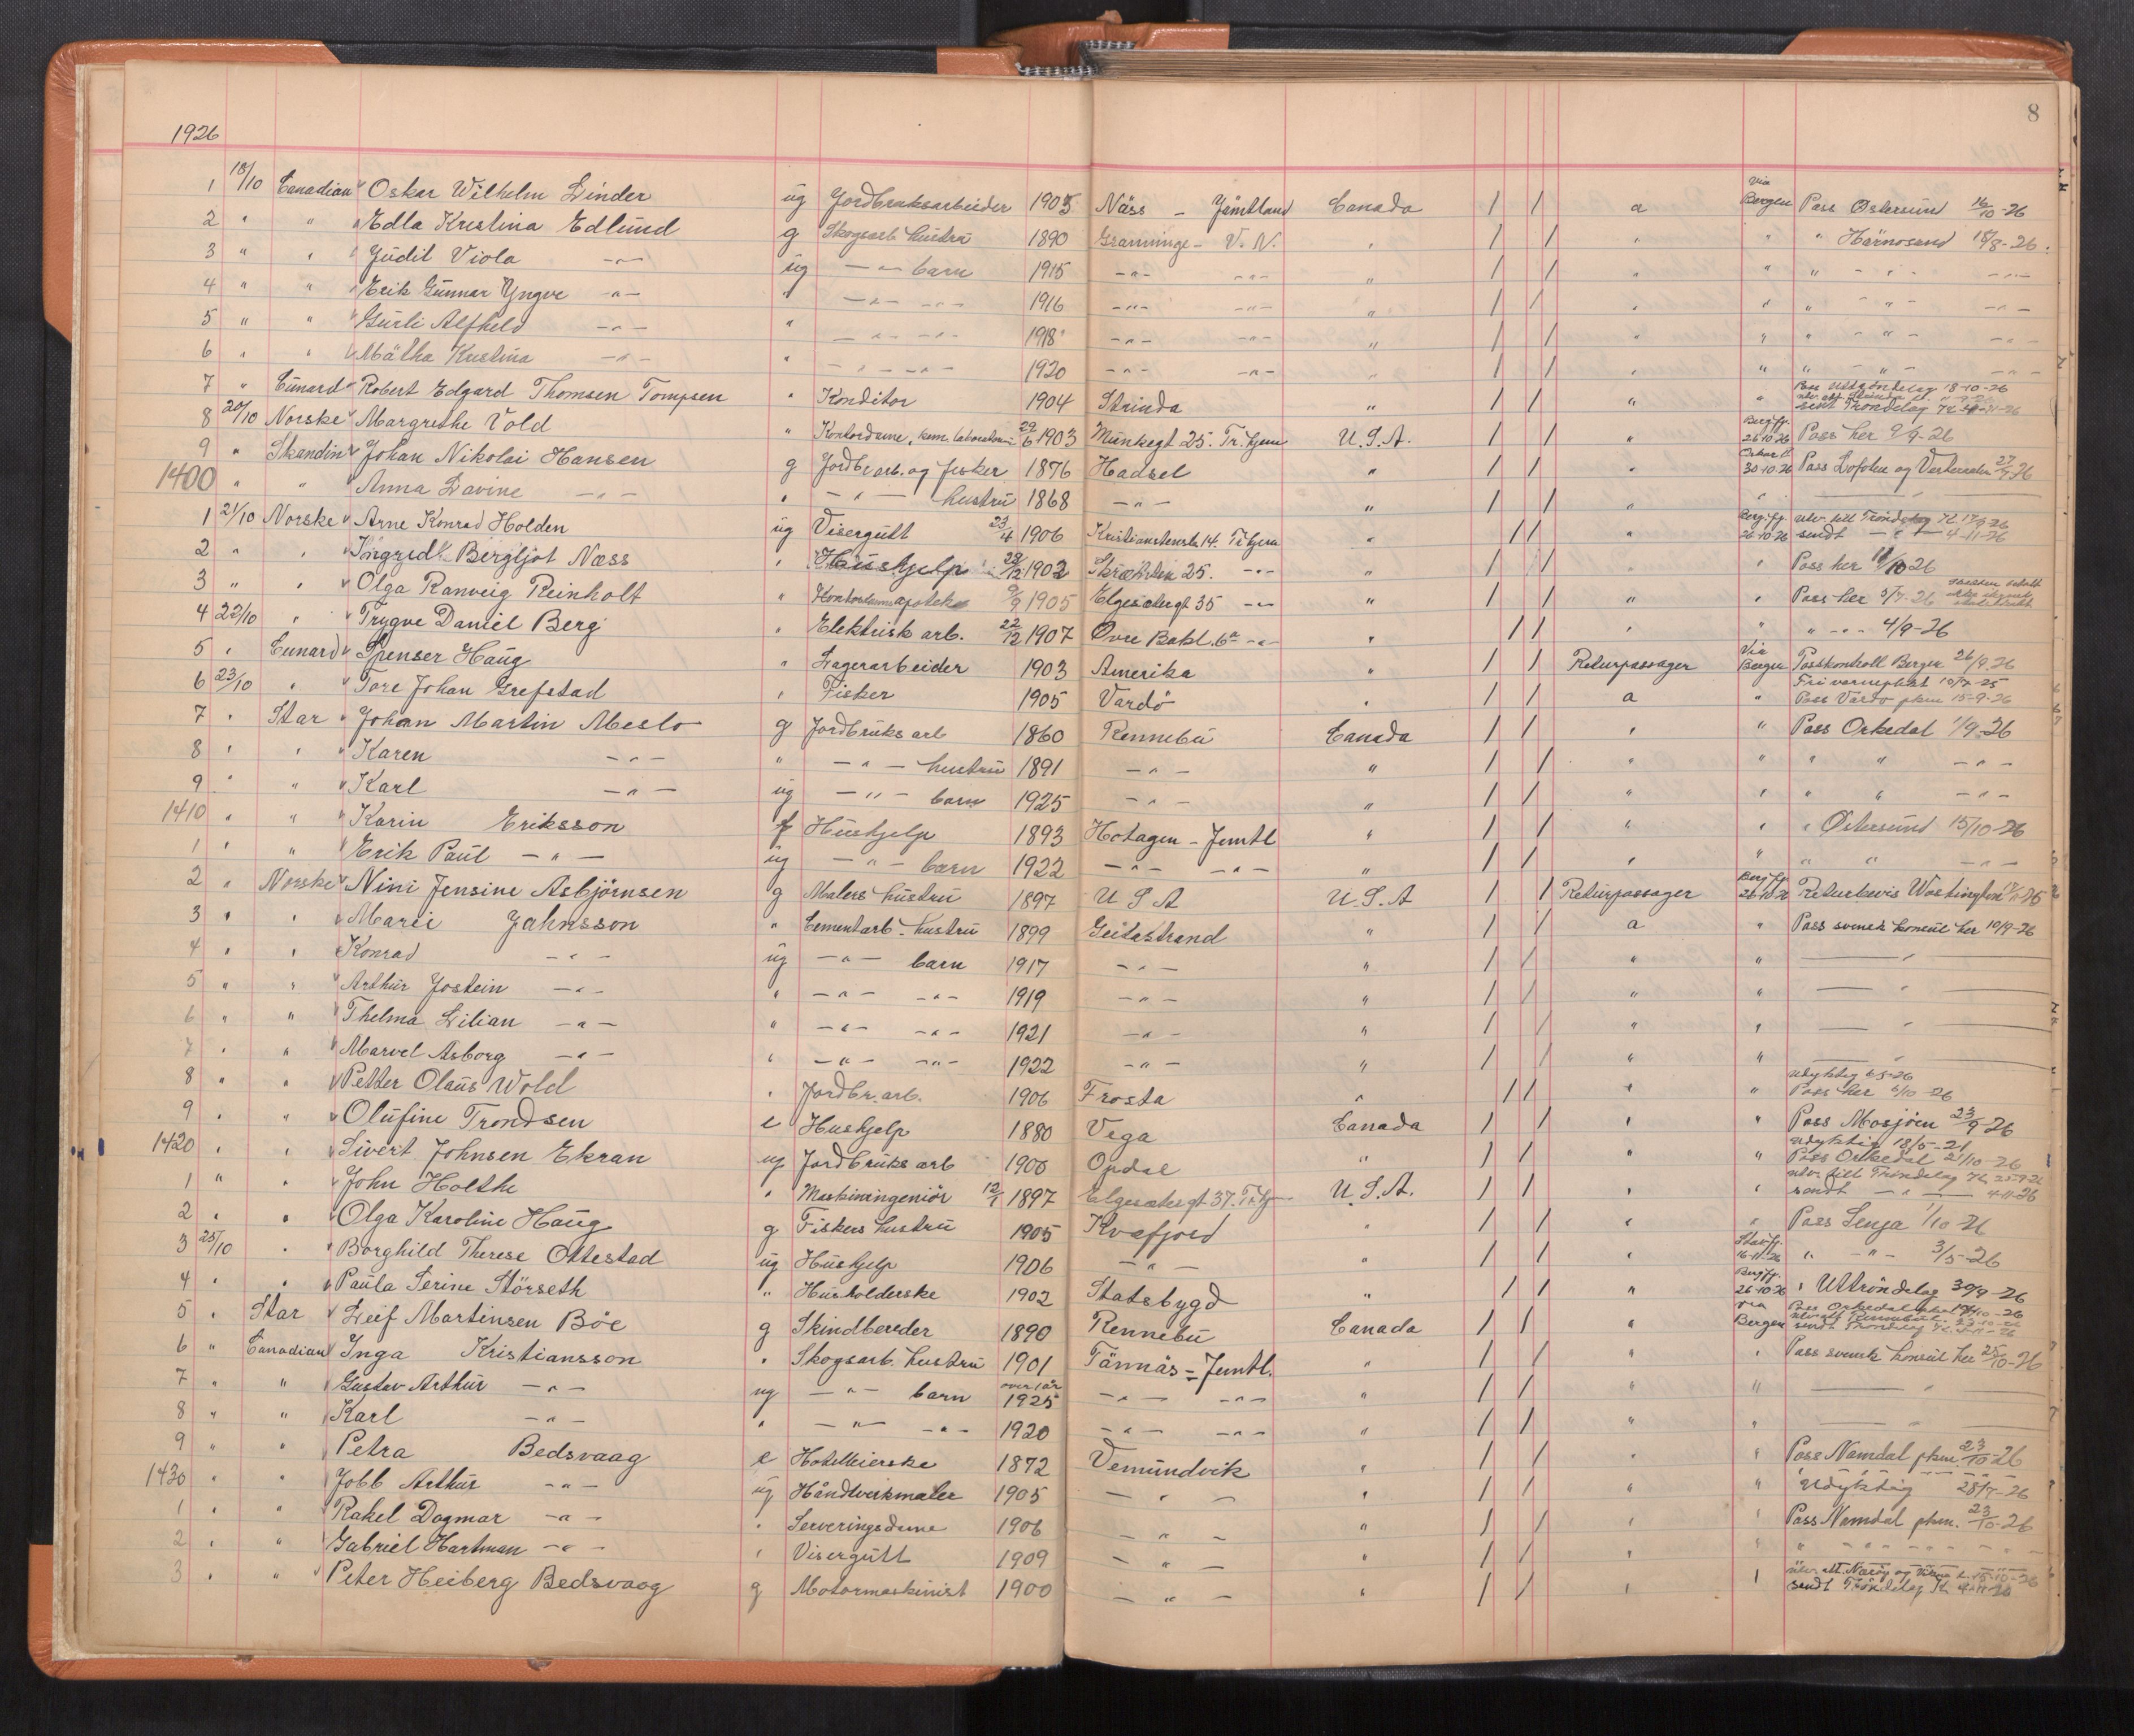 8
1926
1 18/10 Canadian Oskar Wilhelm Linder ug Jordbruksarbeider 1905 Näss - Jämtland Canada / / a via Bergen Pass Østersund 16/10-26
2 " " Edla Kristina Edlund g Skogsarb. hustru 1890 Graninge - V. N. " / / " " " Härnosand 18/8-26.
3 " " Judit Viola -"- ug -"- barn 1915 -"- -"- " / / " " " -"- -"-
4 " " Erik Gunnar Yngve -"- " -"- -"- 1916 -"- -"- " / / " " " -"- -"-
5 " " Gurli Alfhild -"- " -"- -"- 1918 -"- -"- " / / " " " -"- -"-
6 " " Mätha Kristina -"- " -"- -"- 1920 -"- -"- " / / " " " -"- -"-
7 " Cunard Robert Edgard Thomsen Tompsen " Konditor 1904 Strinda " / / " " Pass Uttröndelag 18-10-26
sendt Trøndelag
8 20/10 Norske Margrethe Vold " Kontordame, kem. laboratorium 29/6 1903 Munkegt 25. Tr.hjem U.S.A. / / " Bergfj. 26-10-26 Pass her 9/9-26
9 " Skandin Johan Nikolai Hansen g Jordbr arb. og fisker 1876 Hadsel " / / " Oskar II 30-10-26 Pass Lofoten og Vesteraalen 27/9-26
1400 " " Anna Lavine -"- " -"- hustru 1868 -"- " / / " " -"-
1 21/10 Norske Arne Konrad Holden ug Visergutt 23/4 1906 Kristianstensb. 14. Tr.hjem " / / " Bergfj. 26-10-26 utv. till Trøndelag
sendt -"- 4-11-26
2 " " Ingrid Bergljot Næss " Hushjelp 28/12 1902 25. -"- " / / " " Pass her 11/10 26
3 " " Olga Ranveig Reinholt " Kontordame apotek 9/9 1905 Elgesætergt 35 -"- " / / " " Pass her 3/9-26
4 22/10 " Trygve Daniel Berg " Elektrisk arb. 22/12 1907 Øvre Bakl. 6a -"- " / / " " " -"- 4/9-26
5 " Cunard Spenser Haug " Lagerarbeider 1903 Amerika " / / Returpassager Via Bergen Passkontroll Bergen 26/9 26
6 23/10 " Tore Johan Grefstad " Fisker 1905 Vardö " / / a " Fri vernepligt 10/7-25
Pass Vardø pkm 15-9-26
7 " Star Johan Martin Meslo g Jordbruks arb 1860 Rennebu Canada / / " " Pass Orkedal 1/9-26
8 " " Karen -"- " -"- hustru 1891 -"- " / / " " " " -"-
9 " " Karl -"- ug -"- barn 1925 -"- " / / " " " " -"-
1410 " " Karin Eriksson f Hushjelp 1893 Hotagen - Jemtl " / / " " " Östersund 15/10-26
1 " " Erik Paul -"- ug -"- barn 1922 -"- -"- " / / " " " " -"-
2 " Norske Nini Jensine Asbjörnsen g Malers hustru 1897 U S A U.S.A / / Returpassager Bergfj. 26-10-26 Returbevis Washington
3 " " Marii Jahnsson " Cementarb - hustru 1899 Geitastrand " / / a " Pass svensk konsul her 10/9-26
4 " " Konrad -"- ug -"- barn 1917 -"- " / / " " -"-
5 " " Arthur Jostein -"- " -"- -"- 1919 -"- " / / " " -"-
6 " " Thelma Lilian -"- " -"- -"- 1921 -"- " / / " " -"-
7 " " Marvel Asborg -"- " -"- -"- 1922 -"- " / / " " -"-
8 " " Petter Olaus Wold " Jordbr. arb. 1906 Frosta " / / " " Udyktig 6-5-26
Pass her 6/10-26
9 " " Olufine Trondsen e Hushjelp 1880 Vega Canada / / " " Pass Mosjöen 23/9-26
1420 " " Sivert Johnsen Ekran ug Jordbruks arb 1900 Opdal " / / " " Udyktig 18/5-21
Pass Orkedal 21/10-26
1 " " John Holthe " Maskiningeniör 12/1 1897 Elgesætergt 37. Tr.hj U.S.A. / / " " utv. till Trøndelag
sendt -"- 4-11-26
2 " " Olga Karoline Haug g Fiskers hustru 1905 Kvæfjord " / / " " Pass Senja 1/10-26
3 25/10 " Borghild Therese Ottestad ug Hushjelp 1906 -"- " / / " Stav.fj. 16-11-26 " -"- 3/5-26
4 " " Paula Serine Störseth " Husholderske 1902 Statsbygd " / / " Bergfj. 26-10-26 " Uttröndelag 30/9-26
5 " Star Leif Martinsen Böe g Skindbereder 1890 Rennebu Canada / / " via Bergen Pass Orkedal
sendt Trøndelag
6 " Canadian Inga Kristiansson " Skogsarb. hustru 1901 Tännäs - Jemtl. " / / " " Pass svensk konsul her 25/10-26
7 " " Gustav Arthur -"- ug -"- barn over 1 år 1925 -"- -"- " / / " " -"-
8 " " Karl -"- " -"- -"- 1920 -"- -"- " / / " " -"-
9 " " Petra Bedsvaag e Hotelleierske 1872 Vemundvik " / / " " Pass Namdal pkm. 23/10-26
1430 " " Jobb Arthur -"- ug Håndverkmaler 1905 -"- " / / " " Udyktig 28/7-26
1 " " Rakel Dagmar -"- " Serveringsdame 1906 -"- " / / " " Pass Namdal pkm. 23/10-26
2 " " Gabriel Hartman -"- " Visergutt 1909 -"- " / / " " " -"- -"-
3 " " Peter Heiberg Bedsvaag g Motormaskinist 1900 -"- " / / " " utv. att. Nærøy og Vikna
sendt Trøndelag